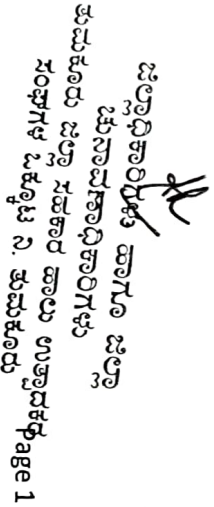 ಜಿಲ್ಲಾಧಿಕಾರಿಗಳು ಹಾಗೂ ಜಿಲ್ಲಾ
ಚುನಾವಣಾಧಿಕಾರಿಗಳು
ತುಮಕೂರು ಜಿಲ್ಲಾ ಸಹಕಾರ ಹಾಲು ಉತ್ಪಾದಕರ
ಸಂಘಗಳ ಒಕ್ಕೂಟ ನಿ. ತುಮಕೂರು
Page 1